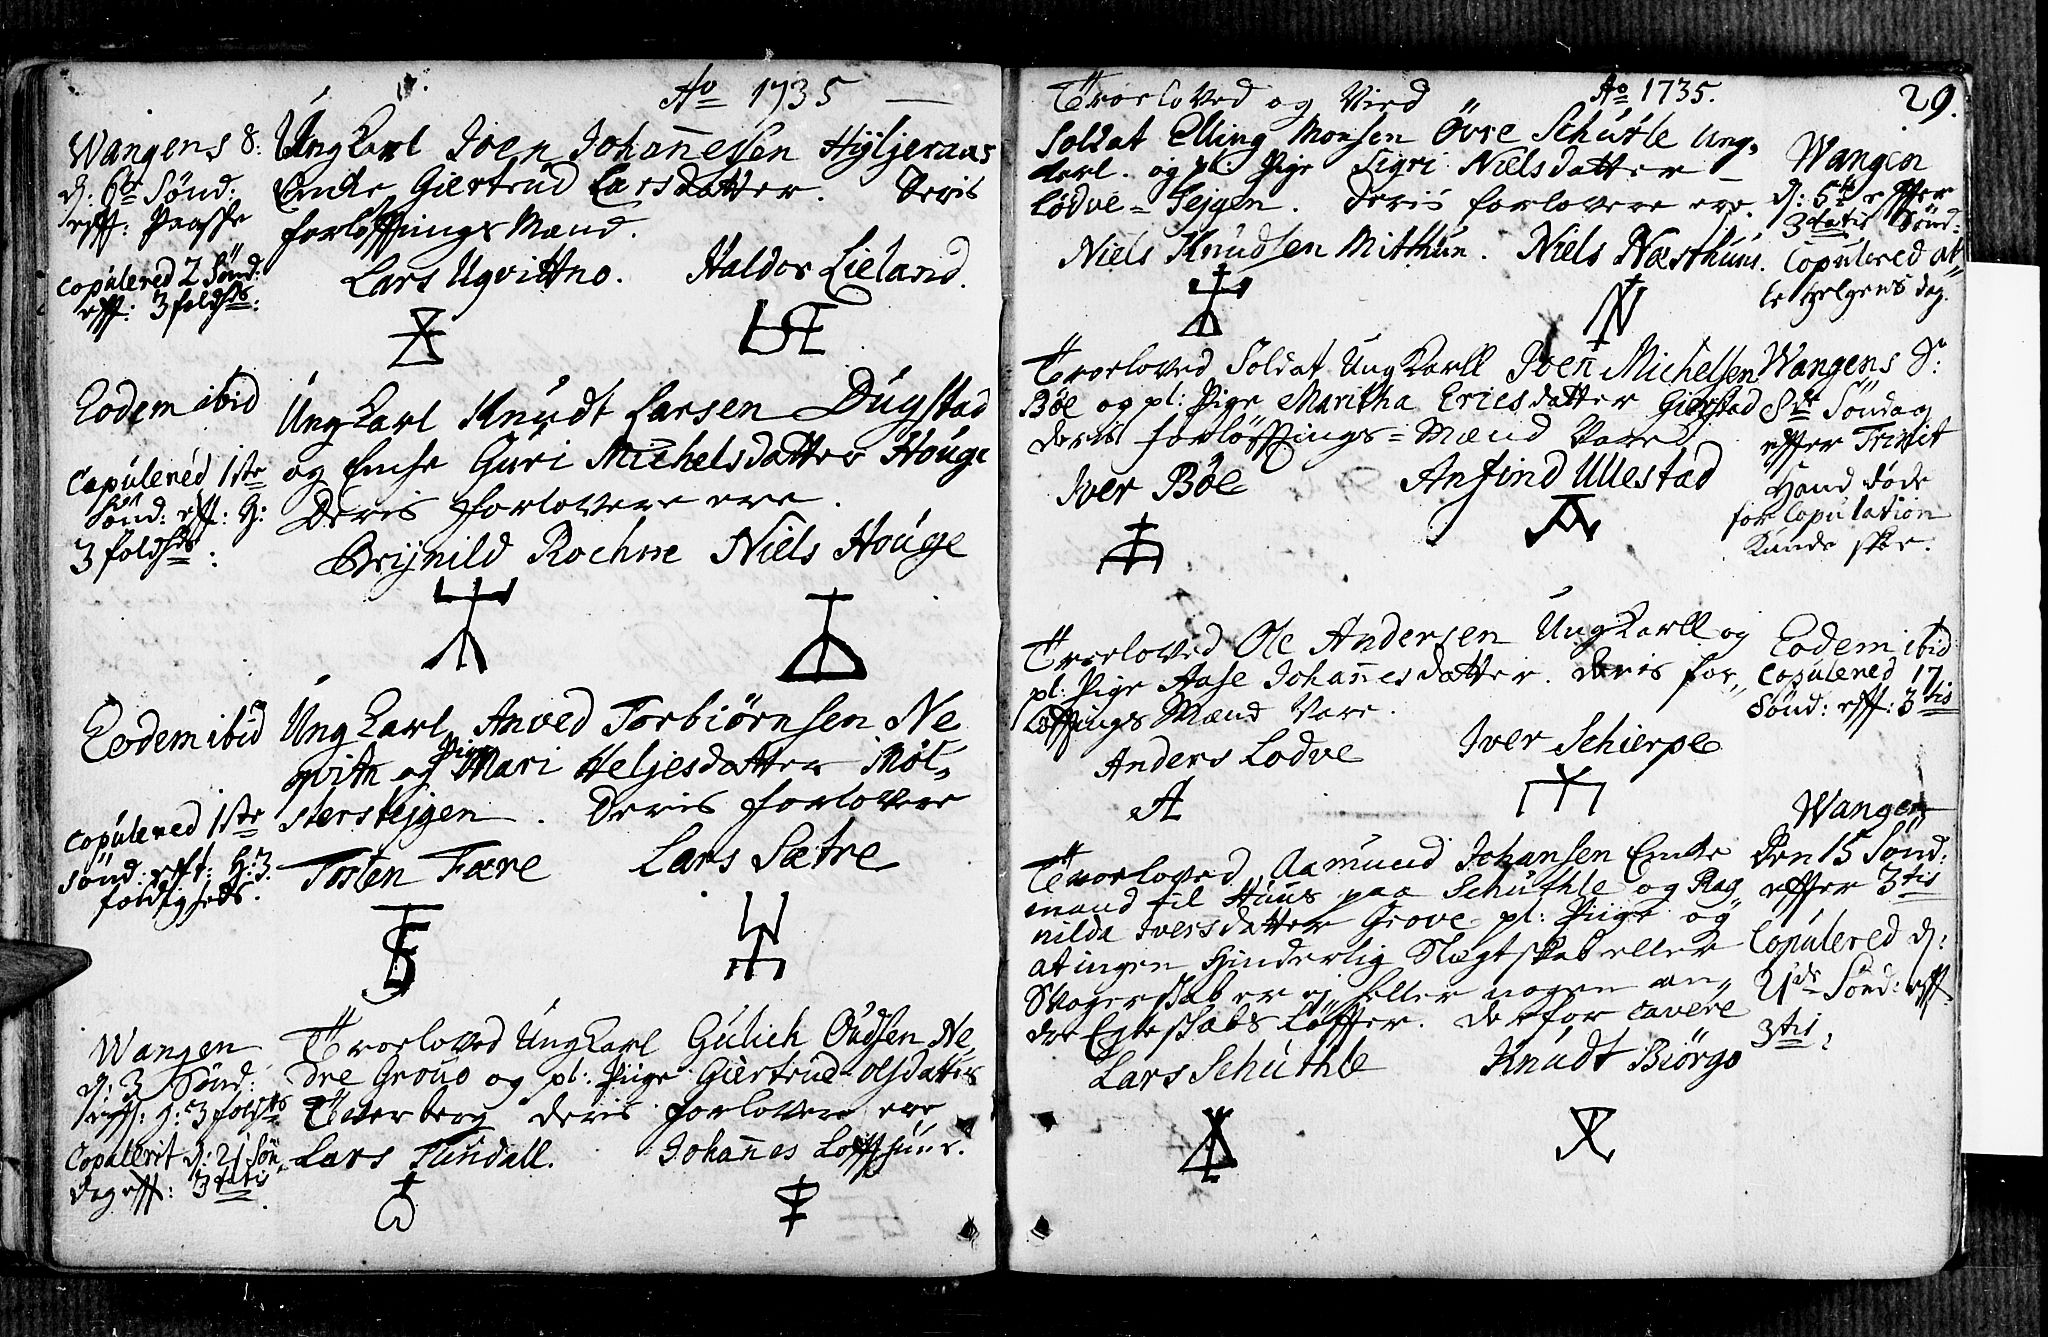 Ao 1735
Wangens S:
d: 6te Sønd:
efft: Paasche
copulered 2 Sønd:
efft: 3foldhds:
UngKarl Iven Johannesen Hyljeraas
Encke Giertrud Larsdatter. Deris
forløfftings Mænd.
Lars Ugvittno. Haldor Lieland.
Eodem ibid
copulered 1ste
Sønd: eff: H:
3foldhds:
UngKarl Knudt Larsen Dugstad
og Encke Guri Michelsdatter Houge
Deris forlovere ere.
Brynild Rochne Niels Houge
Eodem ibid
copulered 1ste
Sønd: efft: H: 3.
foldigheds.
UngKarl Anved Torbiørnsen Ne
qvitn og Pige Mari Heljesdatter Møl-
stersteygen. Deris forlovere
Tosten Fære Lars Sætre
Wangen
d: 3 Sønd:
efft: H: 3foldhds
Copulerit d: 21 Søn
dag eff: 3tatis
Troeloved UngKarl Gulich Oudsen Ne
dre Grouo og pl: Piige Giertrud Olsdatter
Tverberg deris forlovere ere
Lars Tundall. Johannes Løffthuus.
Ao 1735.
29.
Troeloved og Vied
Soldat Elling Monsen Övre Schutle Ung-
karl. og pl: Pige Sigri Nielsdatter
Lødve=Tejgen. deris forlovere ere.
Niels Knudsen Mitthun. Niels Næsthuus.
Wangen
d: 5te effter
3tatis Sønd:
Copulered al-
le Helgens dag.
Troeloved Soldat UngKarll Iven Michelsen
Bøe og pl: Pige Maritha Ericsdatter Gierstad
deris forløfftings=Mænd Vare
Iver Bøe Anfind Ullestad
Wangens S:
8de Søndag
effter Trinit
Hand døde
for Copulation
kunde skee.
Troeloved Ole Andersen UngKarll og
pl: Pige Aase Johannesdatter. deris for-
løfftings Mænd Vare.
Anders Lodve Iver Schierpe
Eodem ibid
copulered 17
Sønd: eff: 3tis
Troeloved Aamund Johansen Encke
mand til Huus paa Schuthle og Rag
nilda Iversdatter Grove pl: Piige og
at ingen Hinderlig Slægtskab eller
Svogerskab er ej heller nogen an-
dre Egteskabs Løffter. derfor cavere
Lars Schuthle Knudt Biørgo
Wangen
den 15 Sønd:
effter 3tis
Copulered d:
21de Sønd: eff
3tis